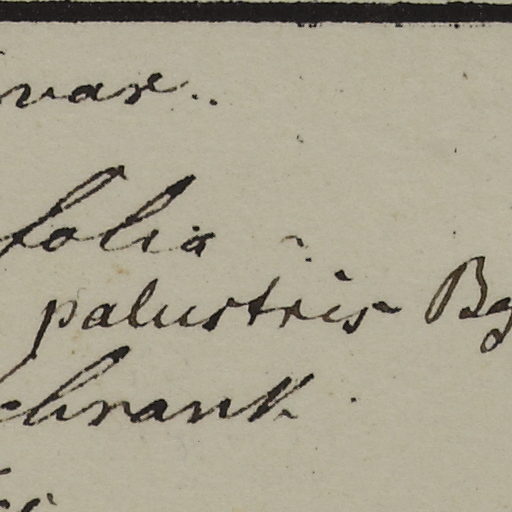 var.
folia
palustris Bg
chrank